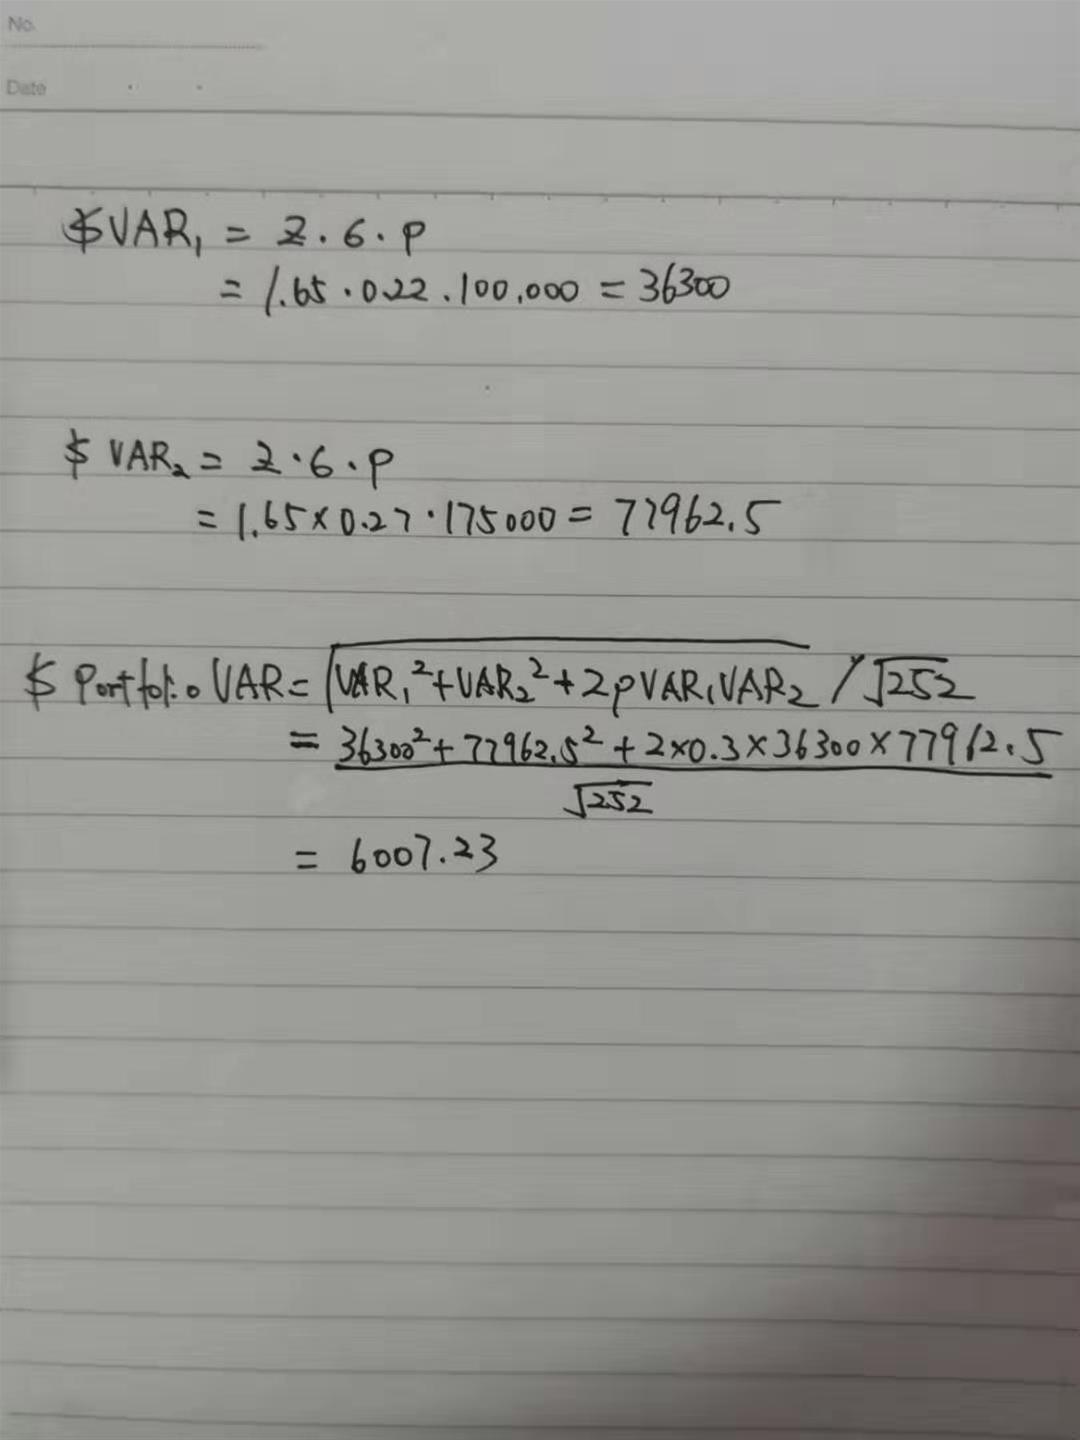 No.
Date
$VAR₁ = Z.6.P
= 1.65.0.22.100,000 = 36300
$ VAR₂ = Z.6.P
= 1.65×0.27·175000 = 77962.5
$ Portfolio VAR = √VAR₁²+VAR₂²+2ρVAR₁VAR₂ /√252
= 36300²+77962.5²+2×0.3×36300×77962.5
√252
= 6007.23